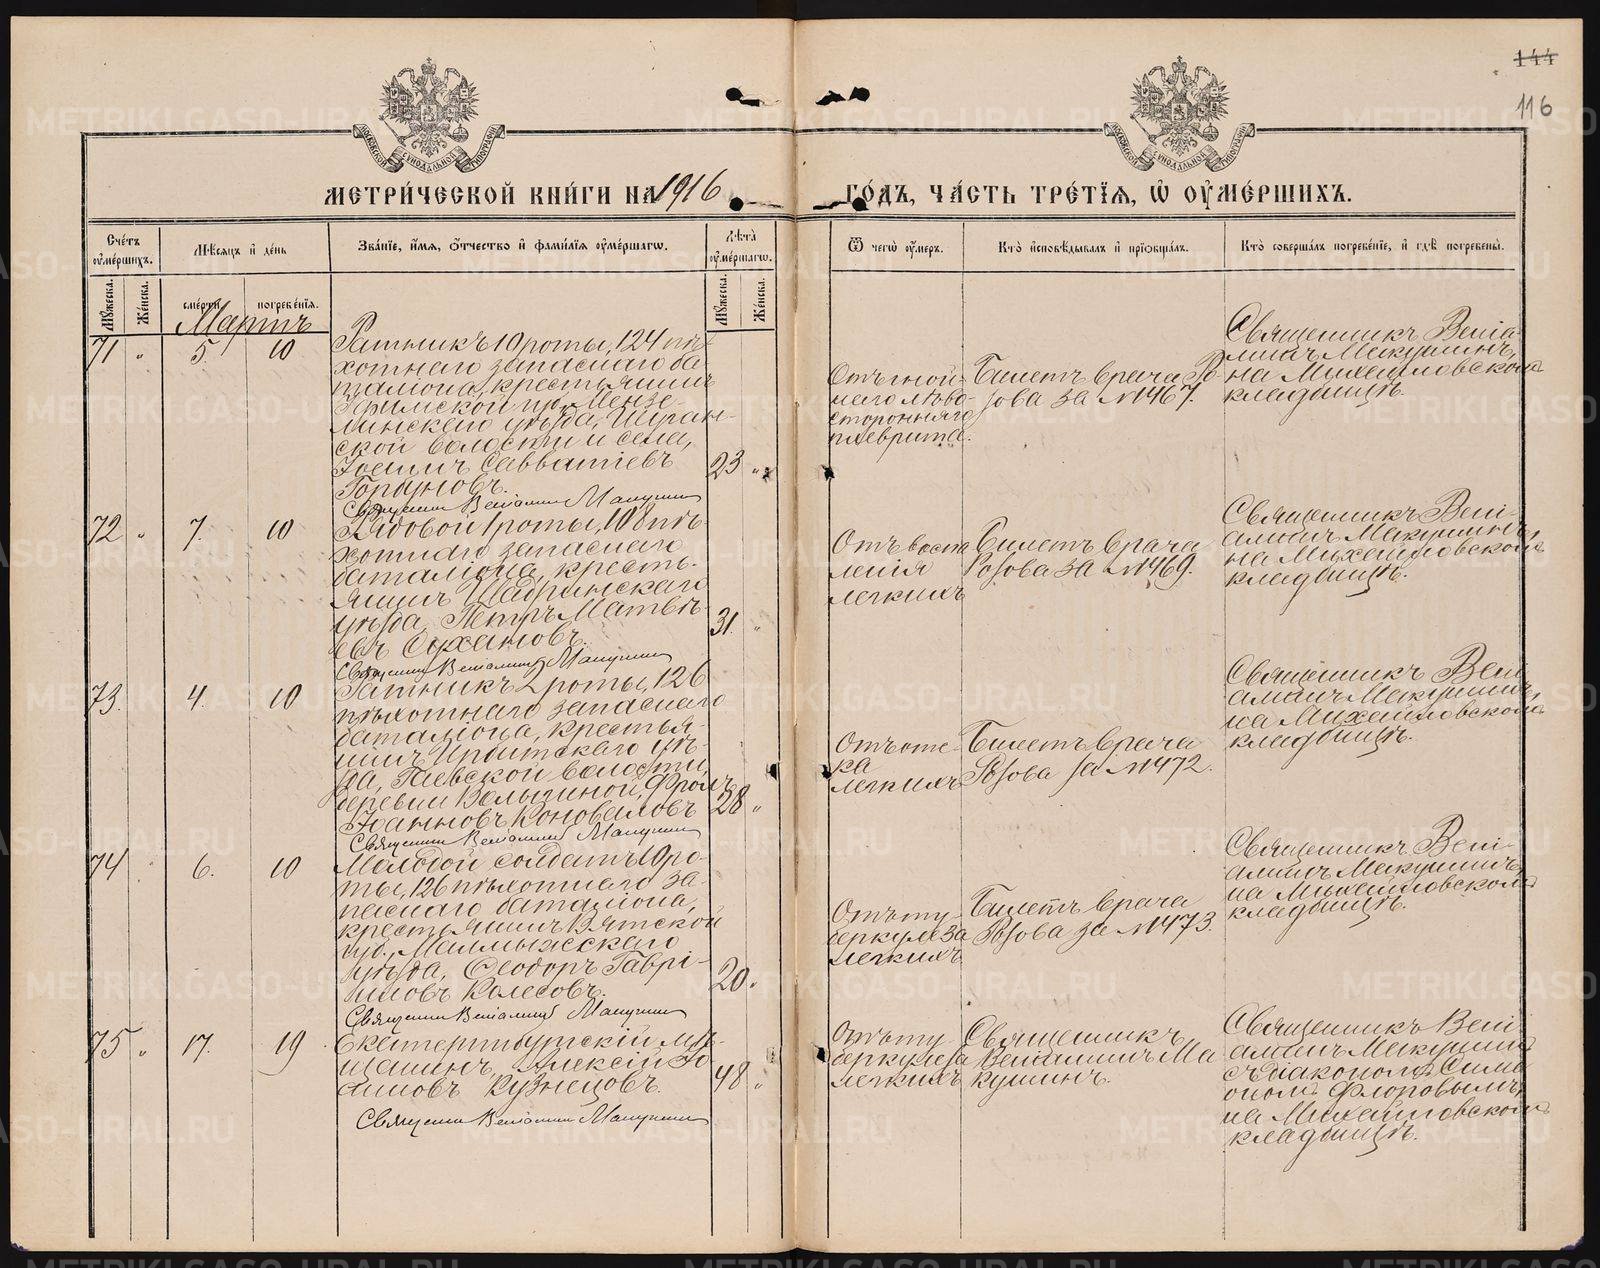 144
116
МЕТРИ́ЧЕСКОЙ КНИ́ГИ НА 1916
ГО́ДЪ, ЧА́СТЬ ТРЕ́ТЇЯ, Ѡ҆ ОУ҆МЕ́РШИХЪ.
Сче́тъ оу҆ме́ршихъ.
Мѣ́сяцъ и҆ де́нь
Зва́нїе, и҆́мя, ѻ҆́тчество и҆ фами́лїя оу҆ме́ршагѡ.
Лѣ́та оу҆ме́ршагѡ.
Ѿ чегѡ̀ оу҆́меръ.
Кто̀ и҆сповѣ́дывалъ и҆ прїѡбща́лъ.
Кто̀ соверша́лъ погребе́нїе, и҆ гдѣ̀ погребены̀.
Мꙋ́жеска.
Же́нска.
сме́рти
погребе́нїя.
Мꙋ́жеска.
Же́нска.
Мартъ
71 " 5. 10
Ратникъ 10 роты, 124 пѣ-
хотнаго запаснаго ба-
таліона, крестьянинъ
Уфимской губ., Мензе-
линскаго уѣзда, Шуган-
ской волости и села,
Іоаннъ Савватіевъ
Горуновъ.
23 "
Священникъ Веніаминъ Макушинъ
Отъ гной-
наго лѣво-
сторонняго
плеврита.
Билетъ врача Ро-
зова за № 467.
Священникъ Веніа-
минъ Макушинъ,
на Михайловскомъ
кладбищѣ.
72 " 7. 10
Рядовой 1 роты, 108 пѣ-
хотнаго запаснаго
баталіона, кресть-
янинъ Шадринскаго
уѣзда, Петръ Матвѣ-
евъ Сухановъ.
31. "
Священникъ Веніаминъ Макушинъ
Отъ воспа
ленія
легкихъ
Билетъ врача
Розова за № 469.
Священникъ Вені-
аминъ Макушинъ,
на Михайловскомъ
кладбищѣ.
73. 4. 10
Ратникъ 2 роты, 126
пѣхотнаго запаснаго
баталіона, крестья-
нинъ Ирбитскаго уѣз-
да, Гаевской волости,
деревни Вельгиной, Фролъ
Іоанновъ Коноваловъ
28 "
Священникъ Веніаминъ Макушинъ
Отъ оте-
ка
легкихъ
Билетъ врача
Розова за № 472.
Священникъ Вені
аминъ Макушинъ,
на Михайловскомъ
кладбищѣ.
74 6. 10
Молодой солдатъ 10 ро-
ты, 126 пѣхотнаго за-
паснаго баталіона,
крестьянинъ Вятской
губ., Малмыжскаго
уѣзда, Ѳеодоръ Гаврі-
иловъ Колесовъ.
20 "
Священникъ Веніаминъ Макушинъ
Отъ ту-
беркулеза
легкихъ.
Билетъ врача
Розова за № 473.
Священникъ Вені-
аминъ Макушинъ,
на Михайловскомъ
кладбищѣ.
75 " 17. 19
Екатеринбургскій мѣ-
щанинъ, Алексій Іо-
анновъ Кузнецовъ.
48 "
Священникъ Веніаминъ Макушинъ
Отъ ту-
беркулеза
легкихъ
Священникъ
Веніаминъ Ма
кушинъ.
Священникъ Вені
аминъ Макушинъ
съ діакономъ Симе
ономъ Флоровымъ,
на Михайловскомъ
кладбищѣ.
METRIKI.GASO-URAL.RU